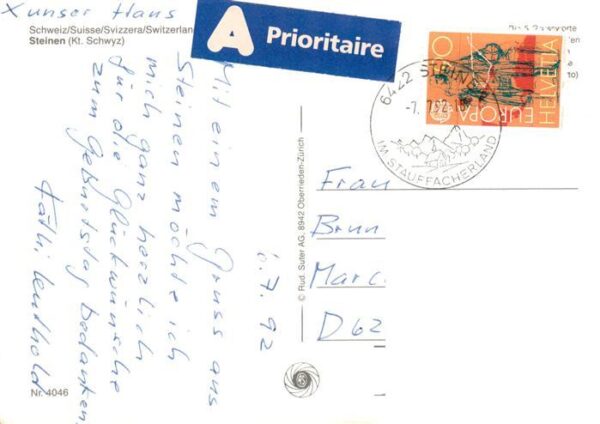 x unser Haus
Schweiz/Suisse/Svizzera/Switzerlan
Steinen (Kt. Schwyz)
A Prioritaire
6422 STEIN
-7. 7.92-18
IM STAUFFACHERLAND
EUROPA
HELVETIA
6.7.92
Mit einem Gruss aus
Steinen möchte ich
mich ganz herzlich
für die Glückwünsche
zum Geburtstag bedanken.
Käthi Leuthold
© Rud. Suter AG, 8942 Oberrieden-Zürich
Frau
Brun
Marc
D 62
Nr. 4046